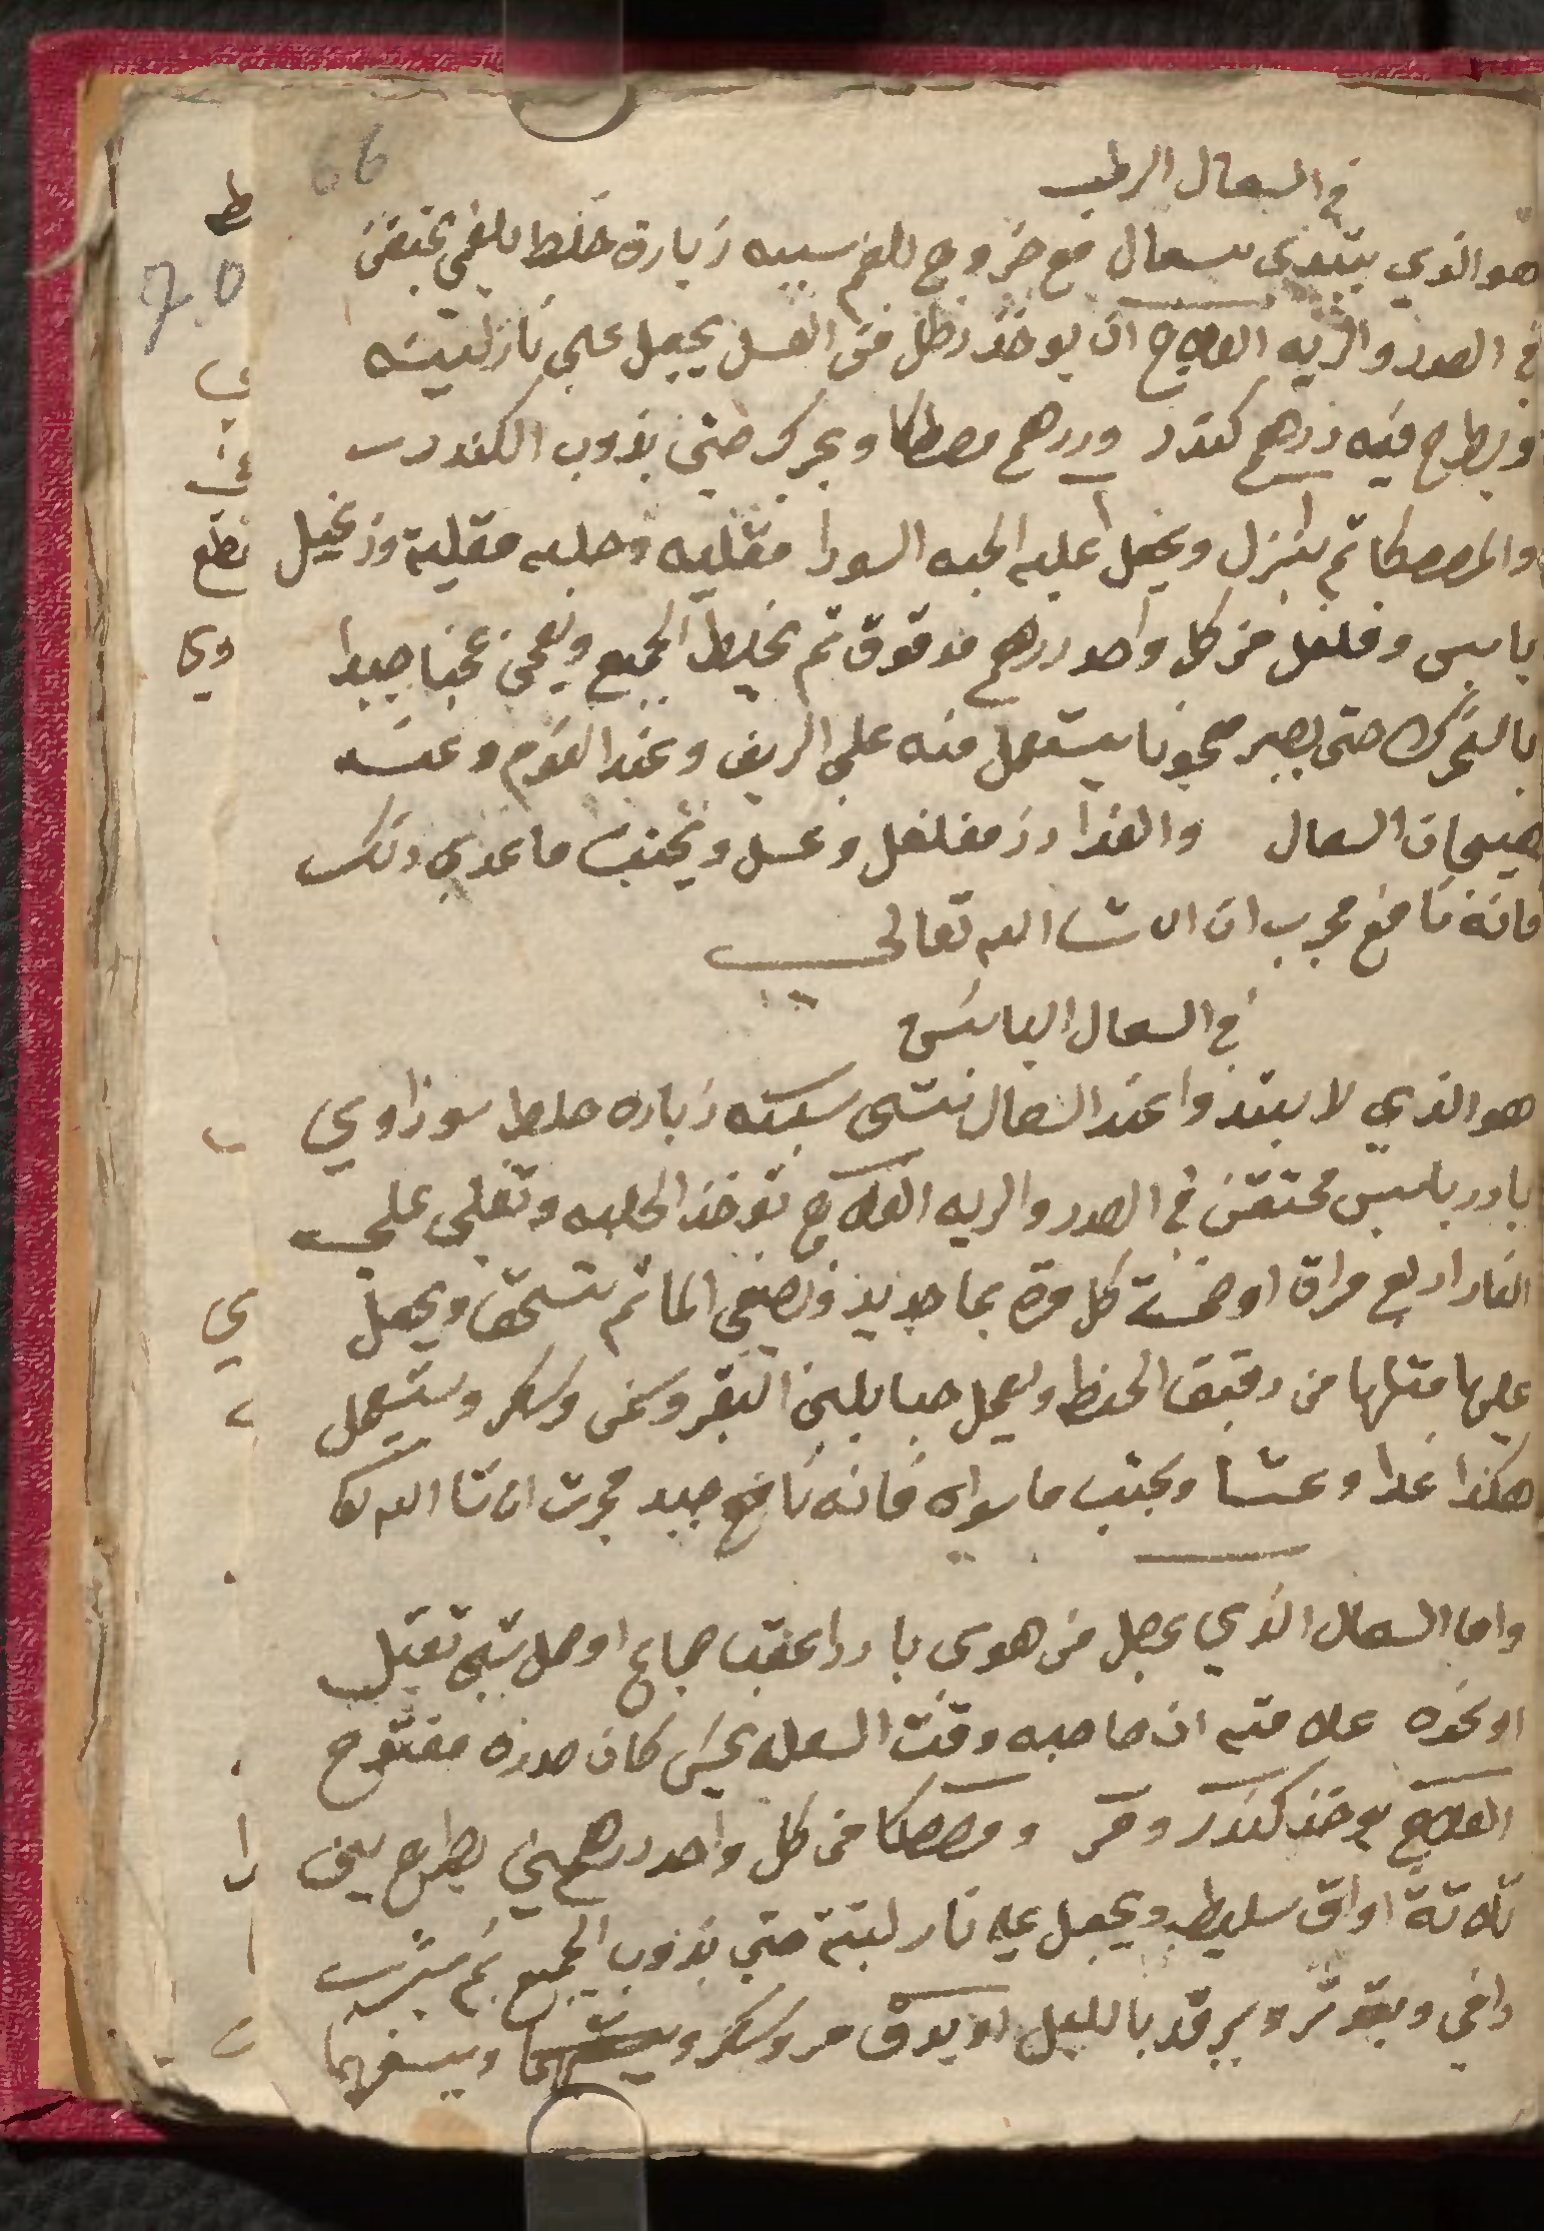 66
70
في السعال الرطب
هو الذي يبتدى بسعال مع خروج بلغم سببه زيادة خلط بلغمي محتقن
في الصدر والريه العلاج ان يوخذ رطل من العسل يجعل على نار لينه
ويطرح فيه درهم كندر ودرهم مصطكا ويحرك حتى يذوب الكندر
والمصطكا ثم ينزل ويجعل عليه الحبه السودا مقليه وحلبه مقلية وزنجبيل
يابس وفلفل من كل واحد درهم مدقوق ثم يخلط الجميع ويعجن عجنا جيدا
بالتحرك حتى يصير معجونا يستعمل منه على الريق وعند النوم وعند
هيجان السعال والغدا رز مفلفل وعسل ويجتنب ما عدى ذلك
فانه نافع مجرب ان شا الله تعالى
في السعال اليابس
هو الذي لا يبتدوا عند السعال بشى سببه زياده خلط سوداوي
بارد يابس محتقن في الصدر والريه العلاج توخذ الحلبه وتغلى على
النار اربع مراق او خمسة كل مرة بما جديد ويصفى الما ثم تسحق ويجعل
عليها مثلها من دقيق الحنط ويعمل حسا بلبن البقر وسمن وسكر ويستعمل
هكذا غدا وعشا ويجتنب ما سواه فانه نافع جيد مجرب ان شا الله تعا
واما السعال الذي يحصل من هوى باردا عقب جماع او حمل شي ثقيل
او نحوه علامته ان صاحبه وقت السعله يحس كان صدره مفتوح
العلاج يوخذ كندر ومر ومصطكا من كل واحد درهمين يطرح في
ثلاثة اواق سليط ويجعل عليه نار لينة حتى يذوب الجميع ثم يشرب
دافي ويتدثر ويرقد بالليل او يدق مر وسكر ويسفهما
ط
ي
في
تطع
ويا
ي